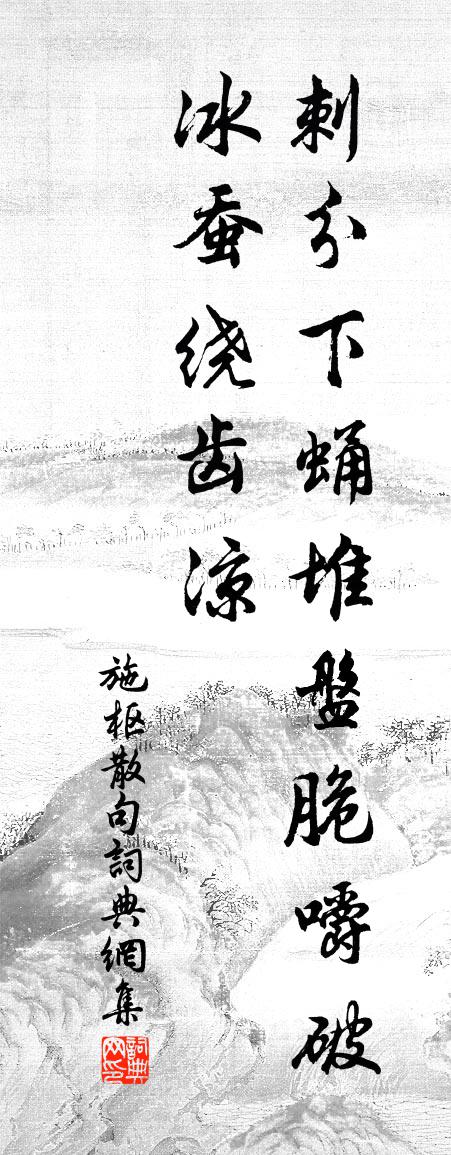 刺分下蛹堆盤脆嚼破
冰蚕绕齿凉
施枢散句詞典網集
詞典
网印